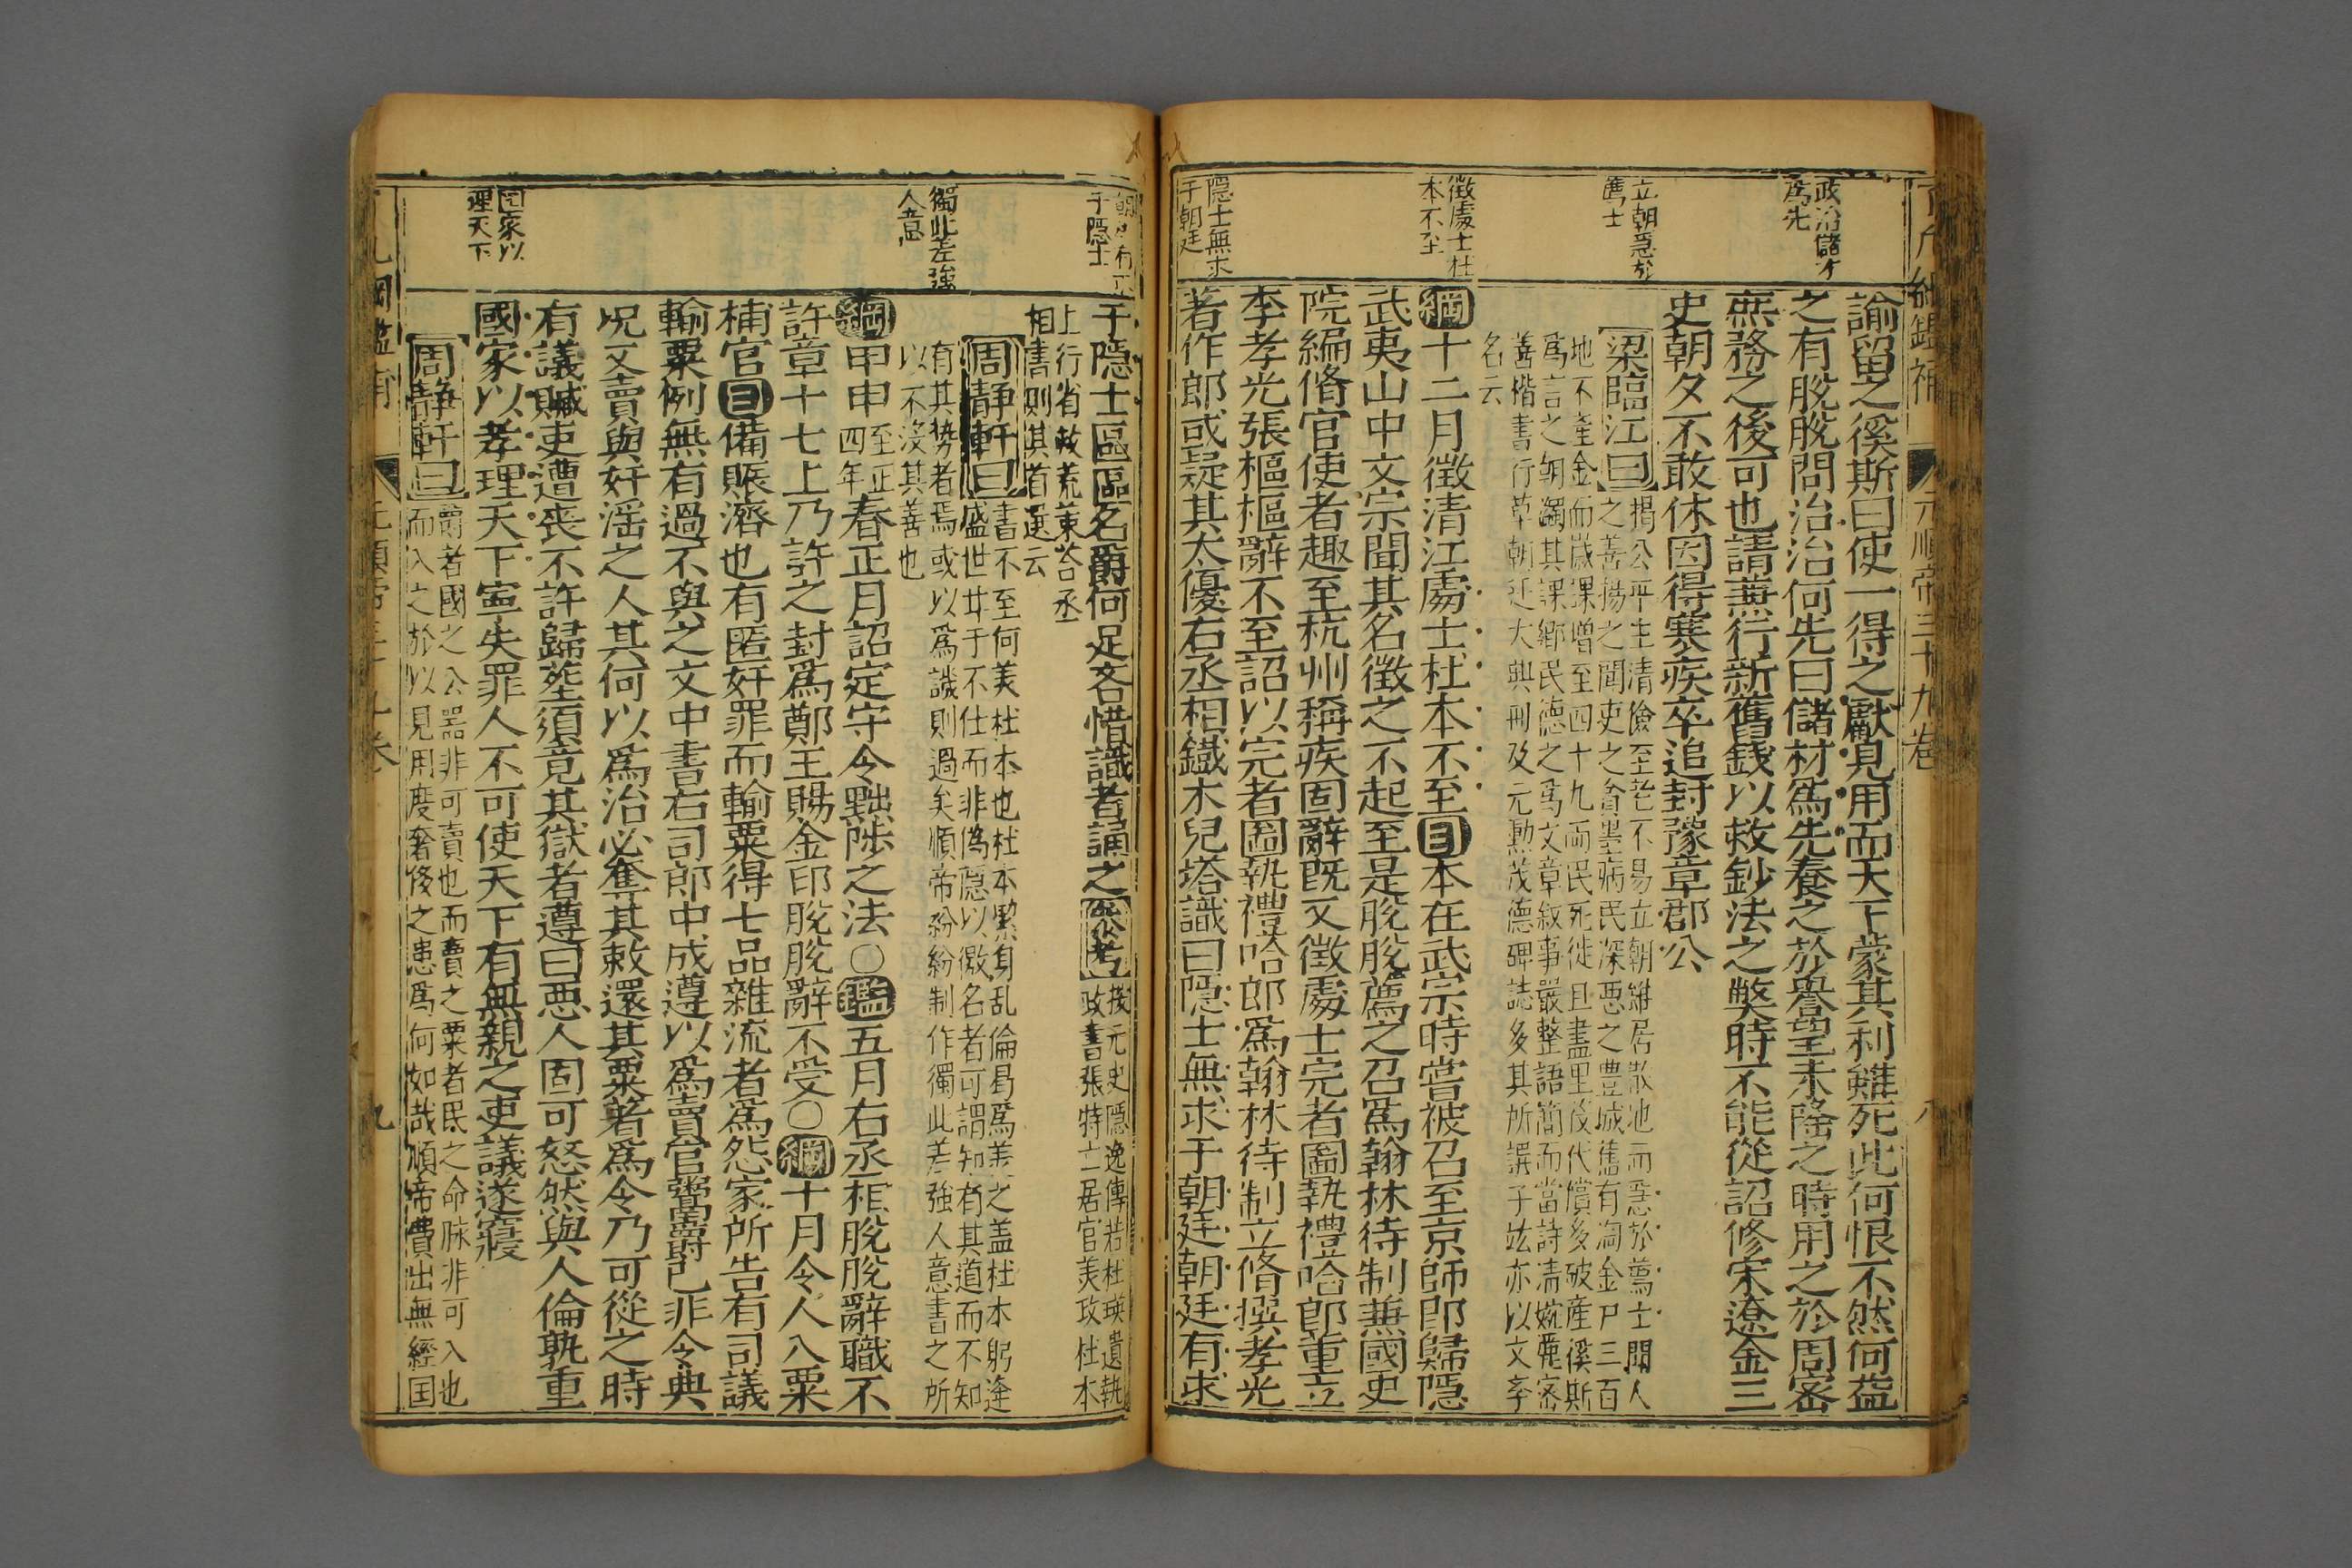 政治儲才
爲先
立朝急於
薦士
徵處士杜
本不至
隱士無求
于朝廷
諭留之徯斯曰使一得之獻見用而天下蒙其利雖死此何恨不然何益
之有脫脫問治治何先曰儲材爲先養之於譽望未隆之時用之於周密
庶務之後可也請兼行新舊錢以救鈔法之弊時不能從詔修宋遼金三
史朝夕不敢休因得寒疾卒追封豫章郡公
梁臨江曰
揭公平生清儉至老不易立朝雖居散地而急於薦士聞人
之善揚之聞吏之貪墨病民深惡之豊城舊有淘金戶三百
地不產金而歲課增至四十九兩民死徙且盡里後代償多破產徯斯
爲言之朝蠲其課鄉民德之爲文章叙事嚴整語簡而當詩清婉麗密
善楷書行草朝廷大典冊及元勲茂德碑誌多其所譔子竑亦以文章
名云
綱十二月徵清江處士杜本不至目本在武宗時嘗被召至京師卽歸隱
武夷山中文宗聞其名徵之不起至是脫脫薦之召爲翰林待制兼國史
院編脩官使者趣至杭州稱疾固辭旣又徵處士完者圖執禮哈郎董立
李孝光張樞樞辭不至詔以完者圖執禮哈郎爲翰林待制立脩撰孝光
著作郎或疑其太優右丞相鐵木兒塔識曰隱士無求于朝廷朝廷有求
元順帝三十九卷
八
于隱士
獨此差強
人意
国家以
理天下
于隱士區區名爵何足吝惜識者誦之
叅考
按元史隱逸傳若杜瑛遺執
政書張特立居官美政杜本
上行省救荒策荅丞
相書則其首選云
周靜軒曰
書不至何美杜本也杜本絜身乱倫曷爲美之盖杜本躬逢
盛世甘于不仕而非僞隱以徼名者可謂知有其道而不知
有其勢者焉或以爲譏則過矣順帝紛紛制作獨此差強人意書之所
以不沒其善也
綱甲申
至正
四年
春正月詔定守令黜陟之法○鑑五月右丞相脫脫辭職不
許章十七上乃許之封爲鄭王賜金印脫脫辭不受○綱十月令人入粟
補官目備賑濟也有匿奸罪而輸粟得七品雜流者爲怨家所告有司議
輸粟例無有過不與之文中書右司郎中成遵以爲賣官鬻爵已非令典
况又賣與奸淫之人其何以爲治必奪其敕還其粟著爲令乃可從之時
有議贓吏遭喪不許歸塟須竟其獄者遵曰惡人固可怒然與人倫孰重
國家以孝理天下寧失罪人不可使天下有無親之吏議遂寢
周靜軒曰
爵者國之公器非可賣也而賣之粟者民之命脉非可入也
而入之於以見用度奢侈之患爲何如哉順帝費出無經国
九